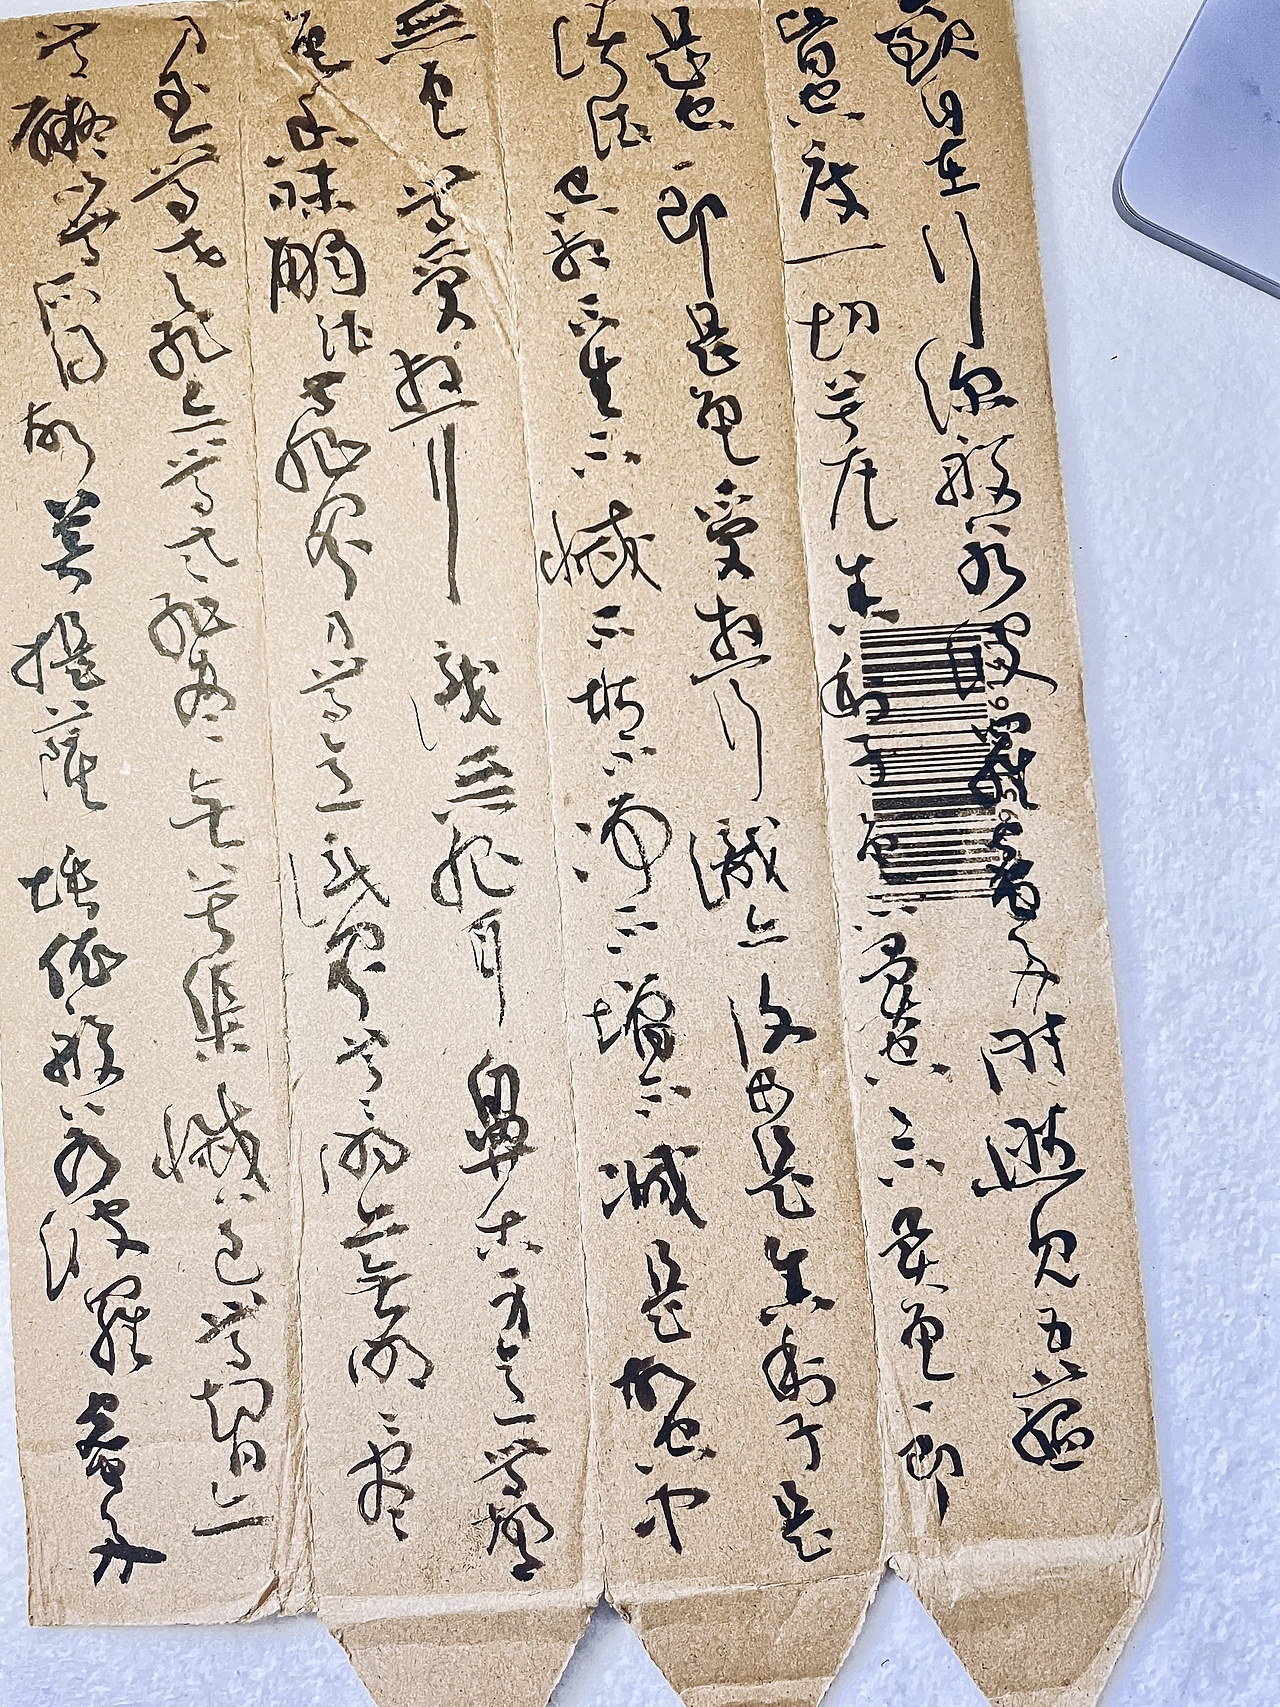 觀自在行深般若波羅蜜多時照見五蘊
皆空度一切苦厄舍利子色不異空〻不異色〻即
是空〻即是色受想行識亦復如是舍利子是
諸法空相不生不滅不垢不淨不增不減是故空中
無色無受想行識無眼耳鼻舌身意無聲
色香味觸法無眼界乃無意識界無明亦無明盡
乃至無老死亦無老死盡無苦集滅道無智亦
無礙無所得故菩提薩埵依般若波羅蜜多